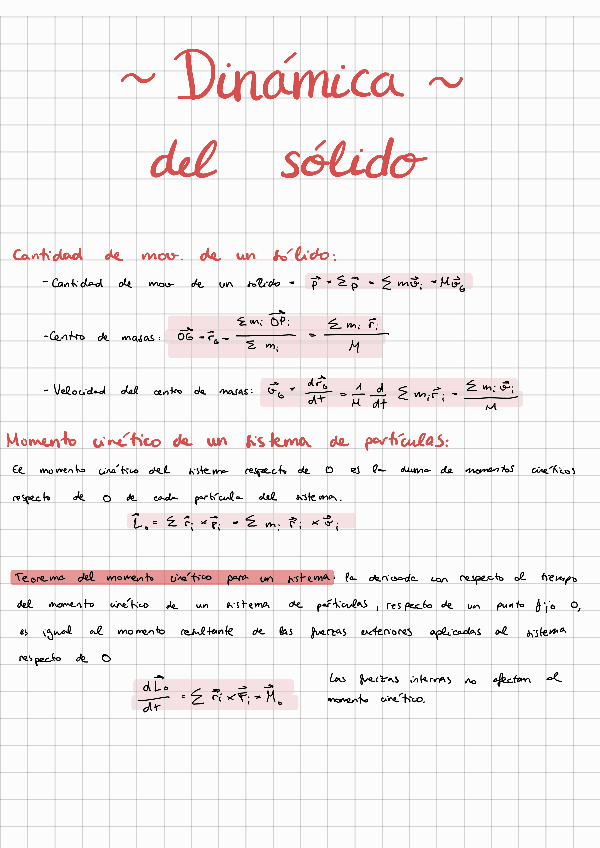 ~ Dinámica ~
del sólido
Cantidad de mov. de un sólido:
- Cantidad de mov de un sólido = p⃗ = Σ p⃗ = Σ m v⃗ᵢ = M v⃗_G
- Centro de masas: OG⃗ = r⃗_G = Σ mᵢ OP⃗ᵢ / Σ mᵢ = Σ mᵢ r⃗ᵢ / M
- Velocidad del centro de masas: v⃗_G = dr⃗_G / dt = 1/M d/dt Σ mᵢ r⃗ᵢ = Σ mᵢ v⃗ᵢ / M
Momento cinético de un sistema de partículas:
El momento cinético del sistema respecto de O es la suma de momentos cinéticos
respecto de O de cada partícula del sistema.
L⃗₀ = Σ r⃗ᵢ × p⃗ᵢ = Σ mᵢ r⃗ᵢ × v⃗ᵢ
Teorema del momento cinético para un sistema: la derivada con respecto al tiempo
del momento cinético de un sistema de partículas, respecto de un punto fijo O,
es igual al momento resultante de las fuerzas exteriores aplicadas al sistema
respecto de O
dL⃗₀ / dt = Σ r⃗ᵢ × F⃗ᵢ = M⃗₀
Las fuerzas internas no afectan al
momento cinético.